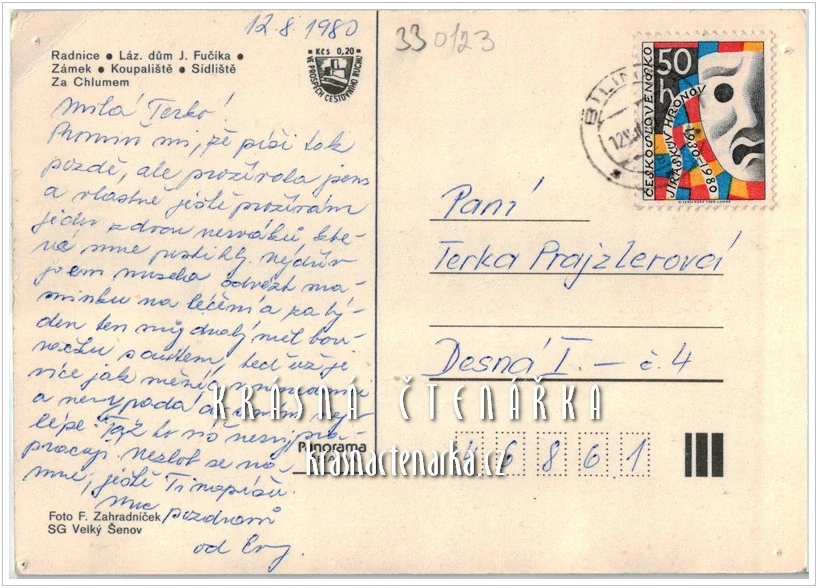 12.8.1980
33 0123
Radnice • Láz. dům J. Fučíka •
Zámek • Koupaliště • Sídliště
Za Chlumem
Kčs 0,20
VE PROSPĚCH CESTOVNÍHO RUCHU
BÍLIN
12.VI
50 h
ČESKOSLOVENSKO
JIRÁSKŮV HRONOV
1930-1980
Milá Terko!
Promiň mi, že píši tak
pozdě, ale prožívala jsem
a vlastně ještě prožívám
jeden z dvou nesváků, kte-
rá mne postihly. nejdřív
jsem musela odvézt ma-
minku na léčení a za tý-
den ten můj drahý měl bou-
račku s autem, teď už je
více jak měsíc v nemocnici
a nevypadá to
lépe. Tak to
pracuji. nezlob se na
mne, ještě Ti napíšu.
Moc pozdravů
od Evy.
Paní
Terka Prajzlerová
Desná I. – č. 4
46861
KRÁSNÁ ČTENÁŘKA
krasnactenarka.cz
Panorama
Foto F. Zahradníček
SG Velký Šenov